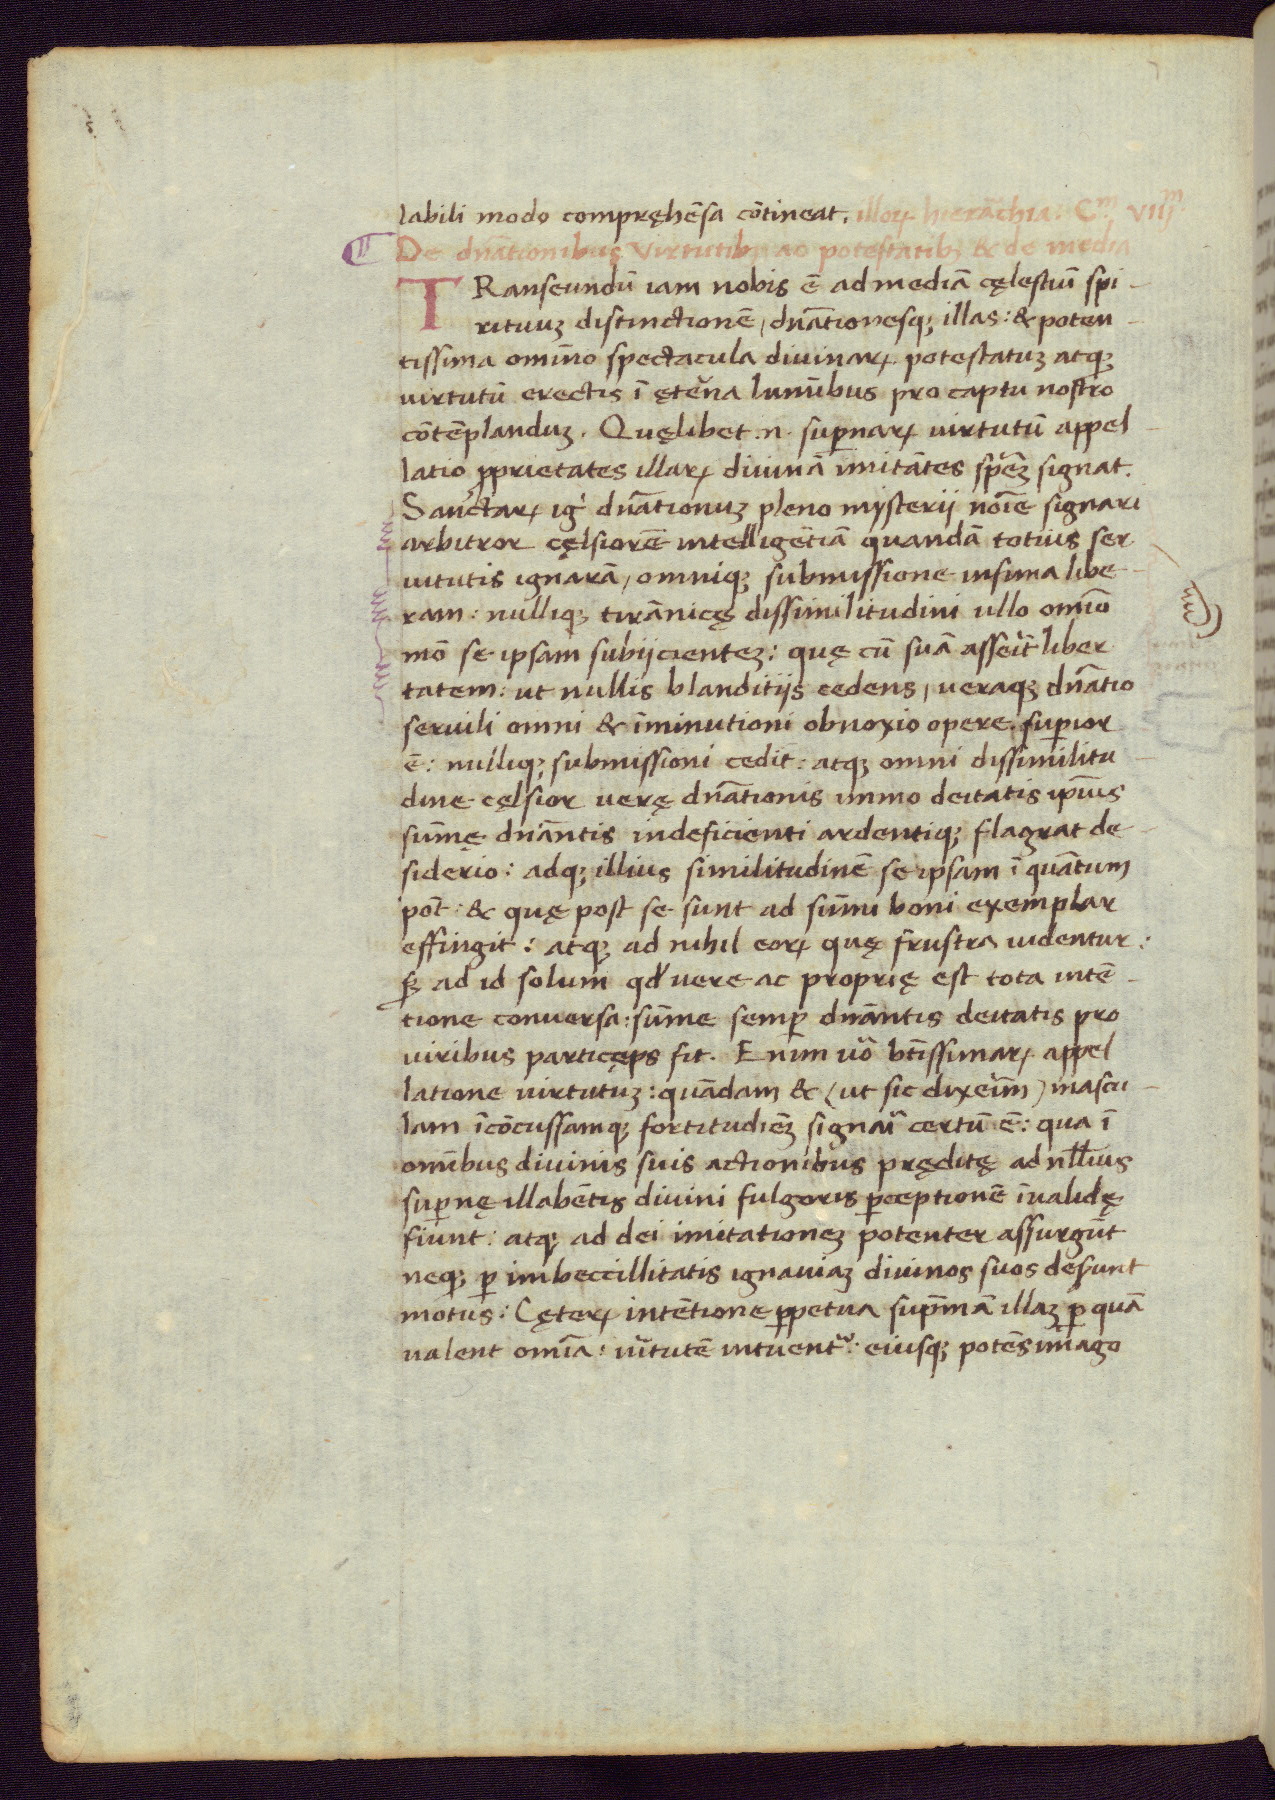 labili modo compręhēsa cōtineat. illoꝝ hierāchia. Cᵐ VIIjᵐ
De dn̄ationibus Virtutibꝫ ac potestatibꝫ & de media
TRanseundū iam nobis ē ad mediā cęlestiū spi-
rituuꝫ distinctionē, dn̄ationesqꝫ illas: & poten-
tissima omīno spectacula divinaꝝ potestatuꝫ atqꝫ
virtutū erectis ī ęteřna lumībus pro captu nostro
cōtēplanduꝫ. Quęlibet .n. suꝑnaꝝ virtutū appel-
latio ꝓprietates illaꝝ divinā imitātes spēꝫ signat.
Sanctaꝝ igᵗ dn̄ationuꝫ pleno mysterii noīe signari
arbitror cęlsiorē intelligētiā quandā totius ser
vitutis ignarā, omniqꝫ submissione infima libe-
ram: nulliqꝫ tirānicę dissimilitudini ullo omīo
mō se ipsam subijcienteꝫ: quę cū suā asserit liber
tatem: ut nullis blanditijs cedens, ueraqꝫ dn̄atio
servili omni & īminutioni obnoxio opere suꝑior
ē: nulliqꝫ submissioni cedit: atqꝫ omni dissimilitu-
dine cęlsior uerę dn̄ationis immo deitatis ip̄ius
sūmę dn̄antis indeficienti ardentiqꝫ flagrat de-
siderio: adqꝫ illius similitudinē se ipsam ī quātum
pōt: & quę post se sunt ad sūmi boni exemplar
effingit: atqꝫ ad nihil eoꝝ quę frustra uidentur:
sꝫ ad id solum qď vere ac proprię est tota intē-
tione conversa: sūme semꝑ dn̄antis deitatis pro
viribus particęps fit. Enim uō bt̄issimaꝝ appel
latione virtutuꝫ: quādam & (ut sic dixeīm) mascu-
lam īcōcussamqꝫ fortitudiēꝫ signaī certū ē: qua ī
omībus divinis suis actionibus pręditę ad nll̄ius
suꝑnę illabētis divini fulgoris ꝑceptionē īualidę
fiunt: atqꝫ ad dei imitationeꝫ potenter assurgūt
neqꝫ ꝑ imbeccillitatis ignaviaꝫ divinos suos deserunt
motus: Cęteꝝ intētione ꝑpetua sup̄mā illaꝫ ꝑ quā
valent omīa: uĭtutē intuentᵘʳ: eiusqꝫ potēs imago